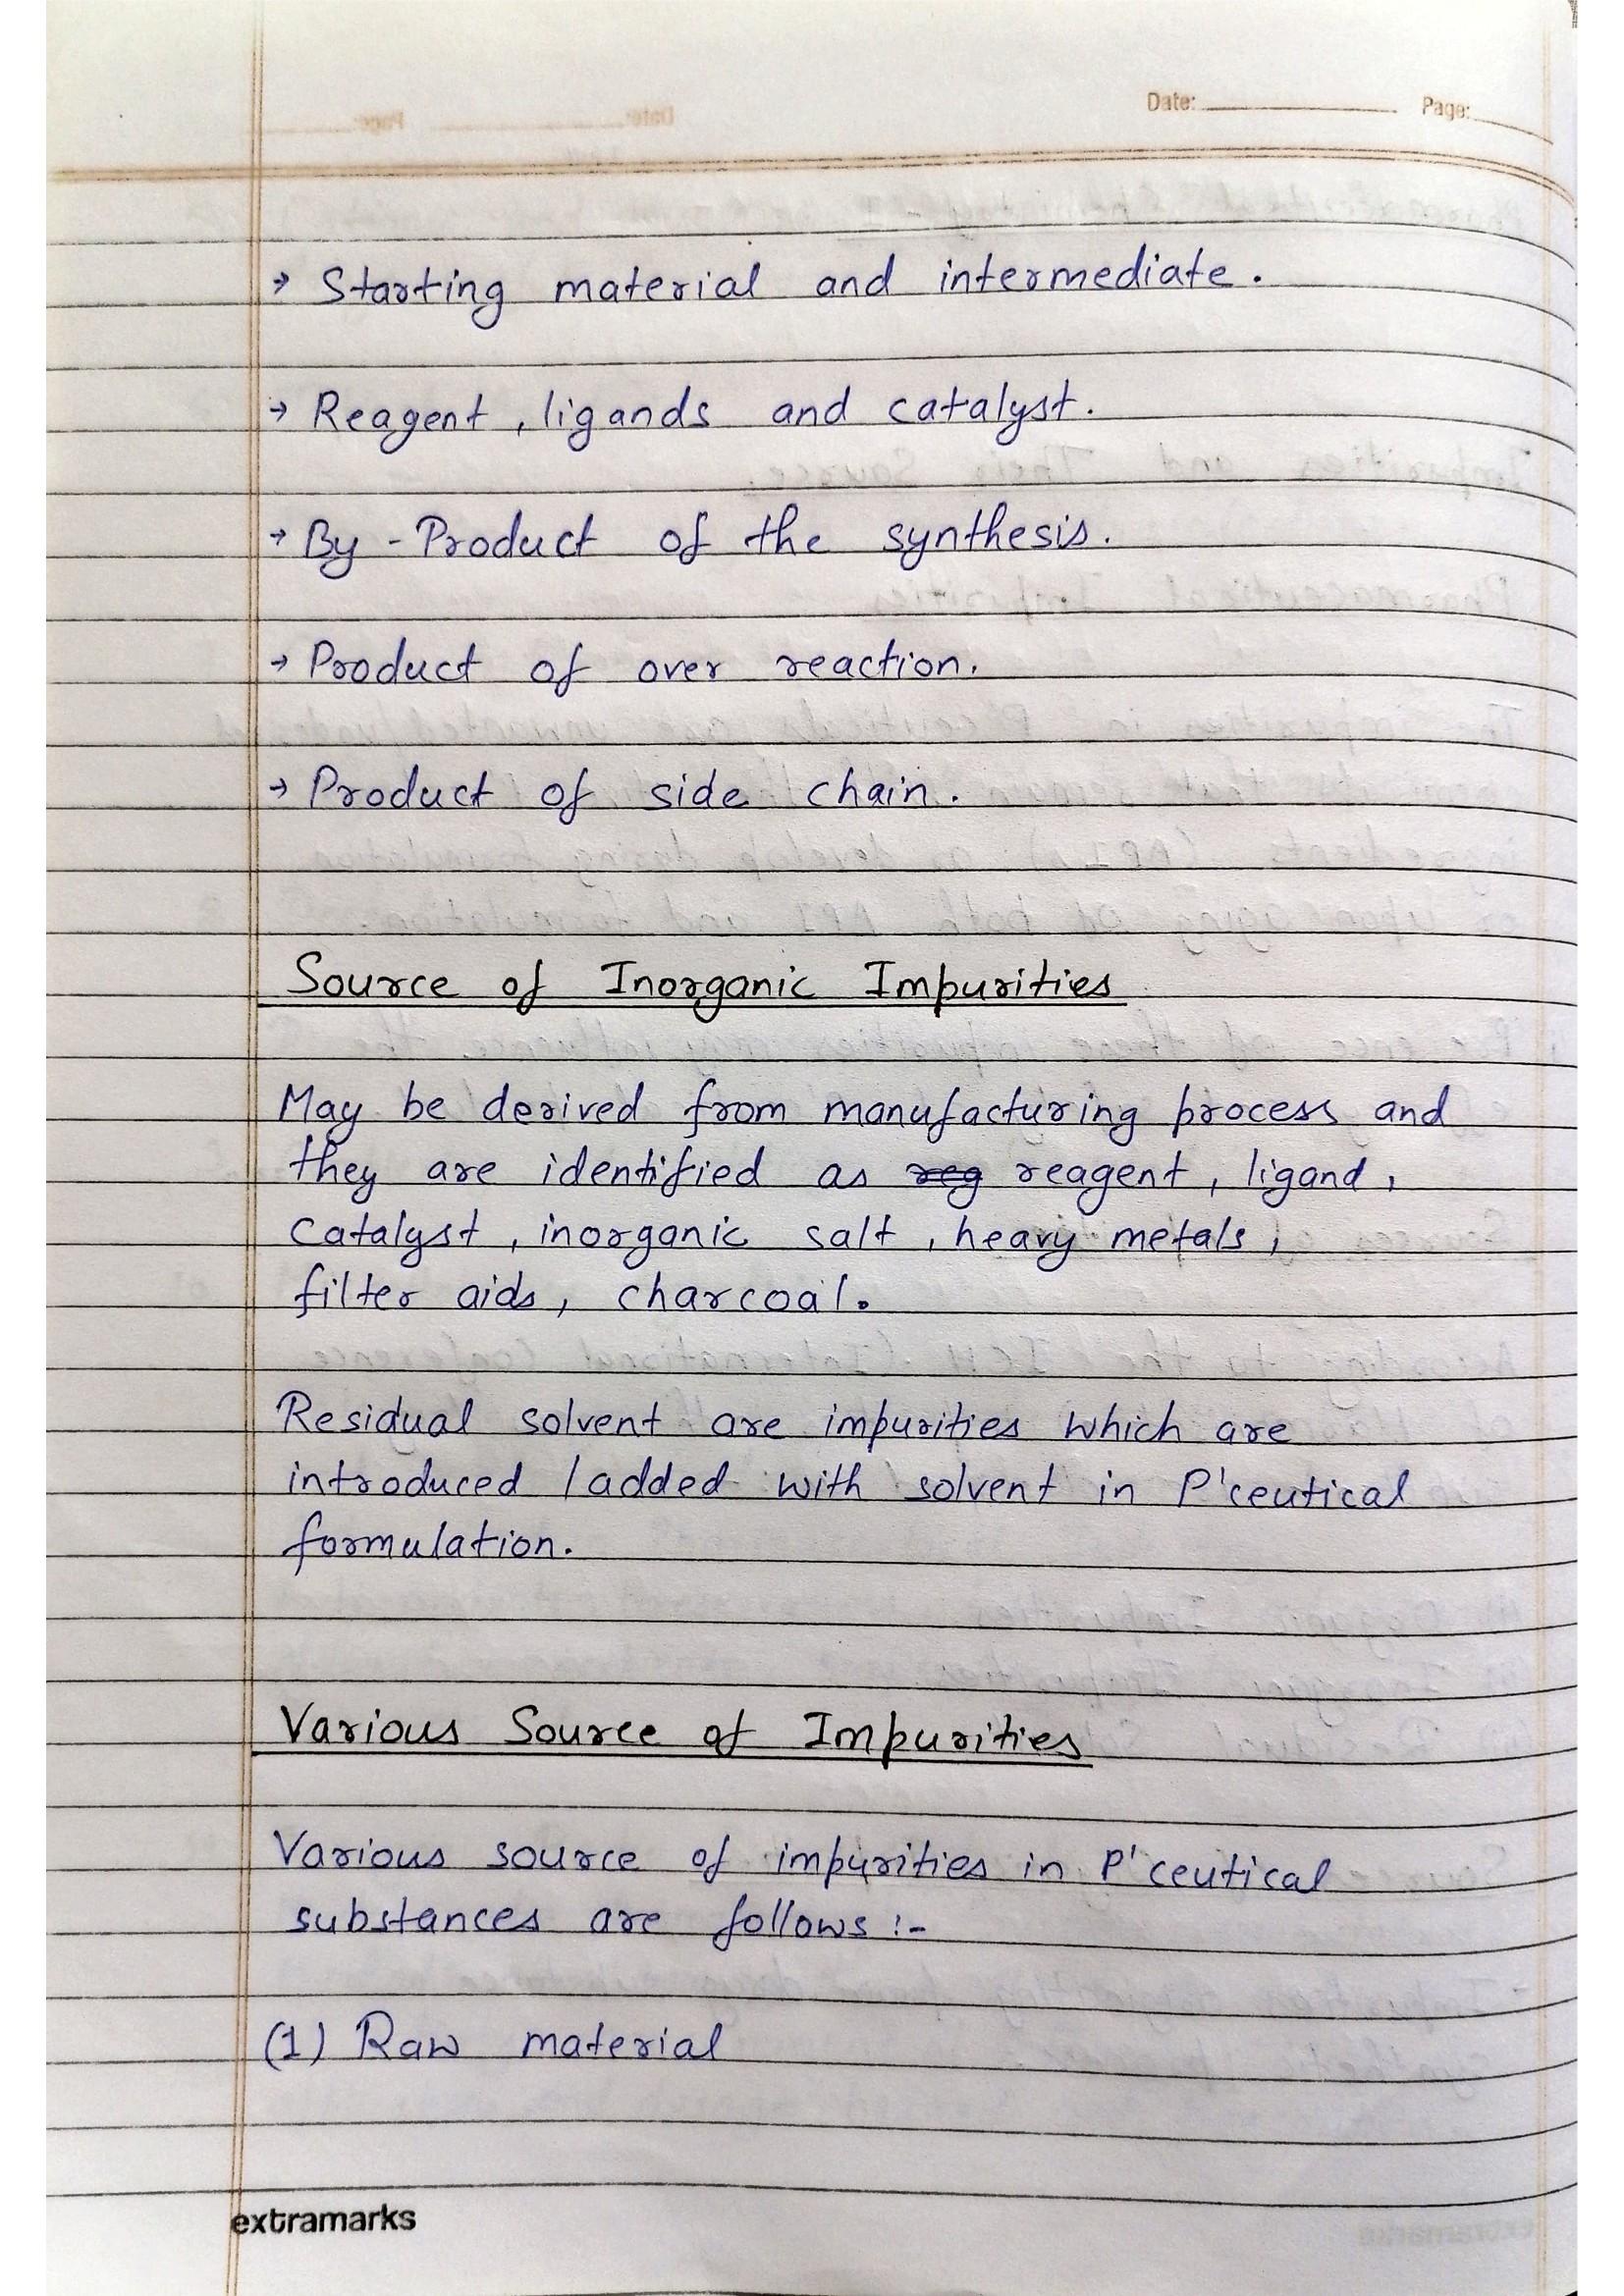 Date: Page:
→ Starting material and intermediate.
→ Reagent, ligands and catalyst.
→ By-Product of the synthesis.
→ Product of over reaction.
→ Product of side chain.
Source of Inorganic Impurities
May be derived from manufacturing process and
they are identified as reg reagent, ligand,
catalyst, inorganic salt, heavy metals,
filter aids, charcoal.
Residual solvent are impurities which are
introduced /added with solvent in P'ceutical
formulation.
Various Source of Impurities
Various source of impurities in P'ceutical
substances are follows :-
(1) Raw material
extramarks